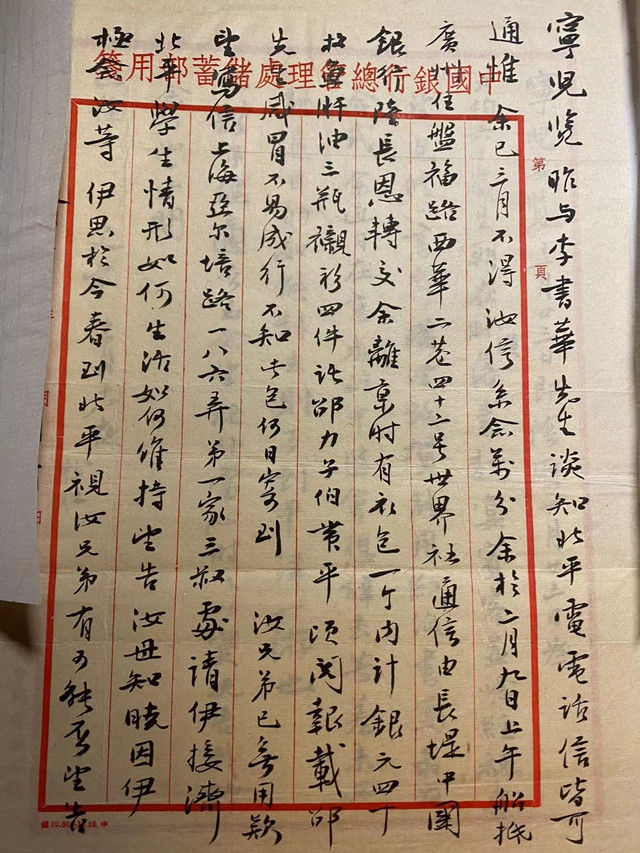 寧兒览 昨与李書華先生談知北平電電话信皆可
通惟 余已三月不得 汝信系念萬分 余於二月九日上午船抵
廣州住盤福路西華二巷四十二号世界社通信由長堤中國
銀行陸長恩轉交余離京时有衣包一个内计銀元四丁
枚魚肝油三瓶襯衫四件託邵力子伯贲平顷閱報載邵
先生感冒不易成行不知此包何日寄到 汝兄弟已無用款
望寫信上海亞尔培路一八六弄第一家三叔處請伊接濟
北平學生情形如何生活如何维持望告 汝母知曉因伊
極念汝等 伊思於今春到北平視汝兄弟有可能否望告
中國銀行總管理處儲蓄部用箋
第 頁